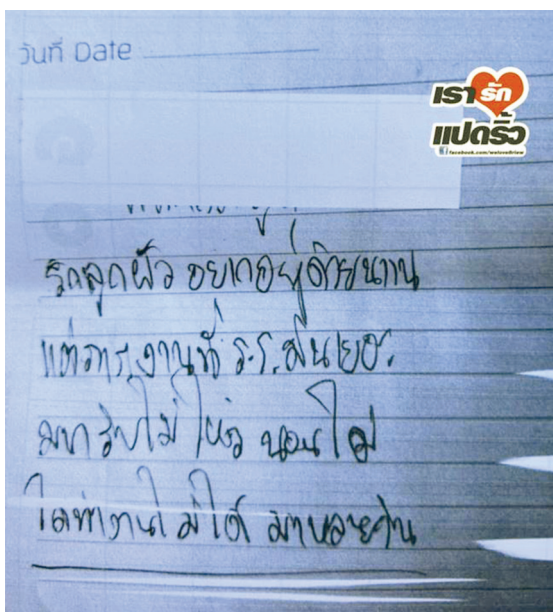 วันที่ Date
เรา รัก
แปดริ้ว
facebook.com/welove8riew
รักลูกผัว อยากอยู่ด้วยนาน
แต่ภาระงานที่ ร.ร. มันเยอะ
มาก รับไม่ไหว นอนไม่
ได้ทำงานไม่ได้ มาหลายวัน